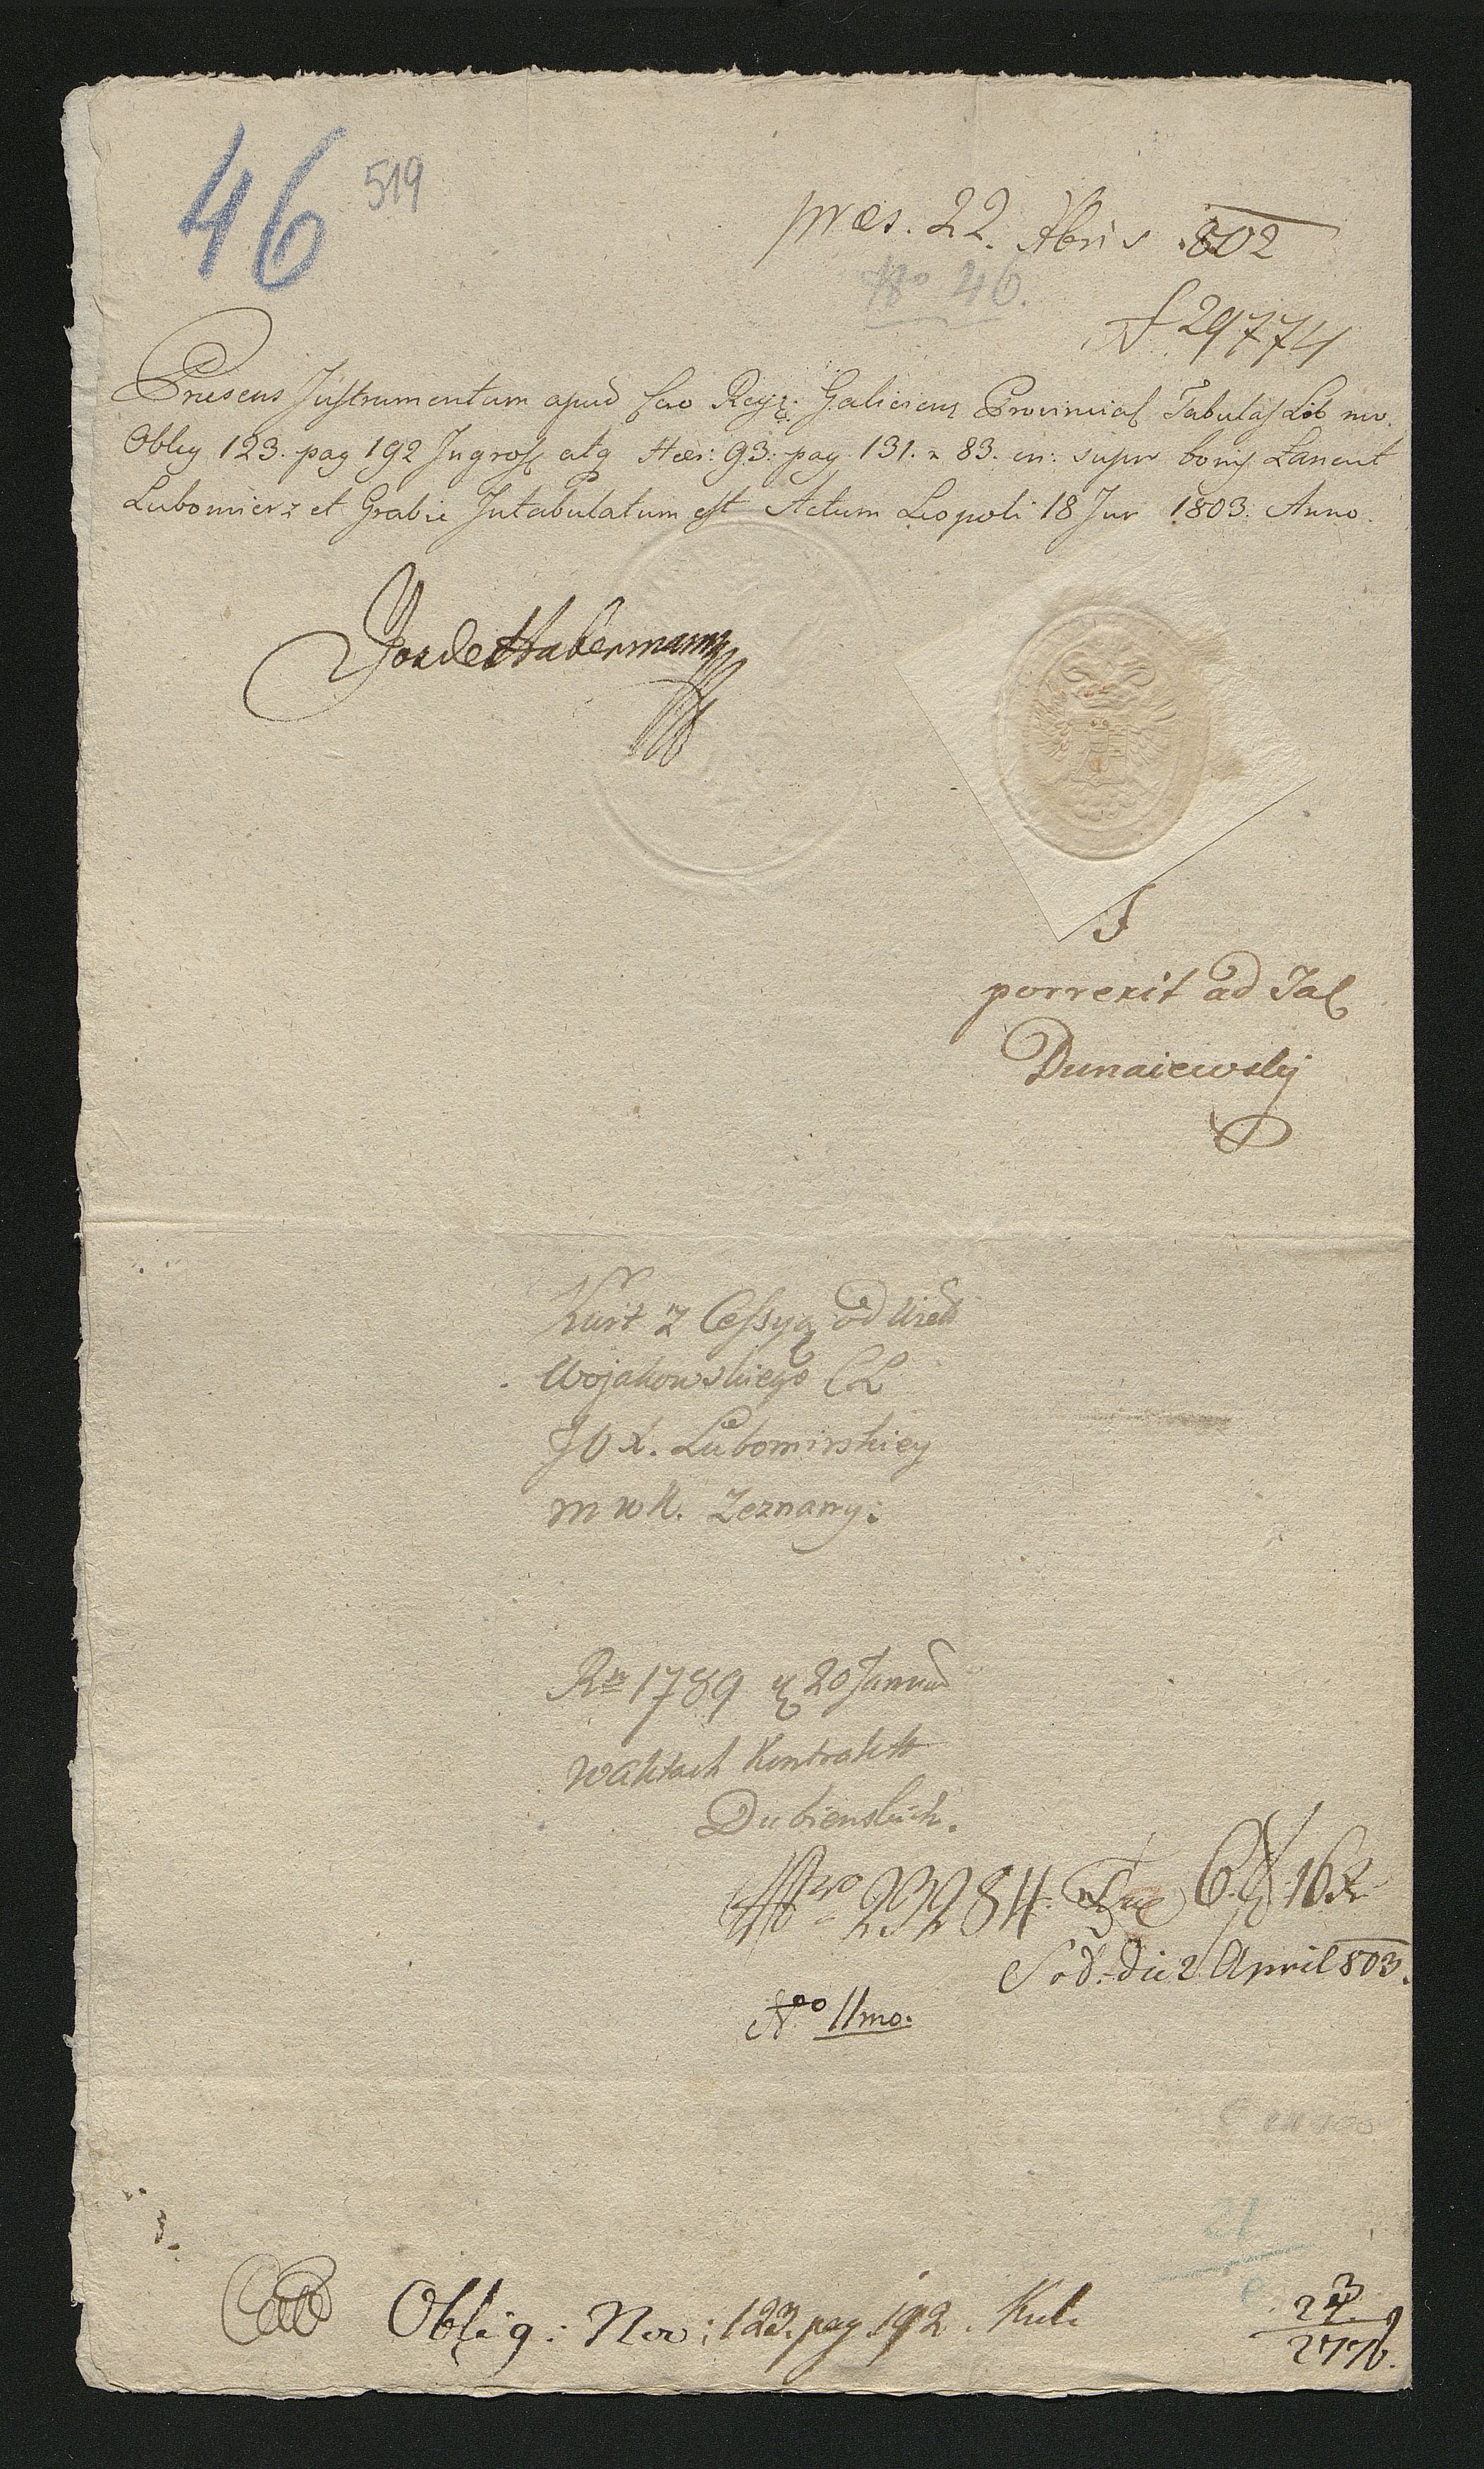 46 519
præs. 22. Xbris 802
No 46.
29774
Presens Instrumentum apud Cæo Regg. Galiciens Provincial Tabulas Lib nov.
Oblig 123. pag 192 Ingross atq Hær: 93. pag 131. n 83. on: supr bonis Lancut
Lubomierz et Grabie Intabulatum est Actum Leopoli 18 Jur 1803. Anno.
Jos de Habermann
porrexit ad Tab
Dunaiewsky
Kwit z Cessyą od
Wojakowskiego
JO X. Lubomirskiey
m w K. Zeznany:
Ru 1789 d 20 Januar
w aktach Kontraktt
Dubienskich.
Nro 23284. Tax 6 f 16 x
Sod. die 2 April 803.
No 11mo.
21
Oblig: Nov: 123. pag 192.
2776.